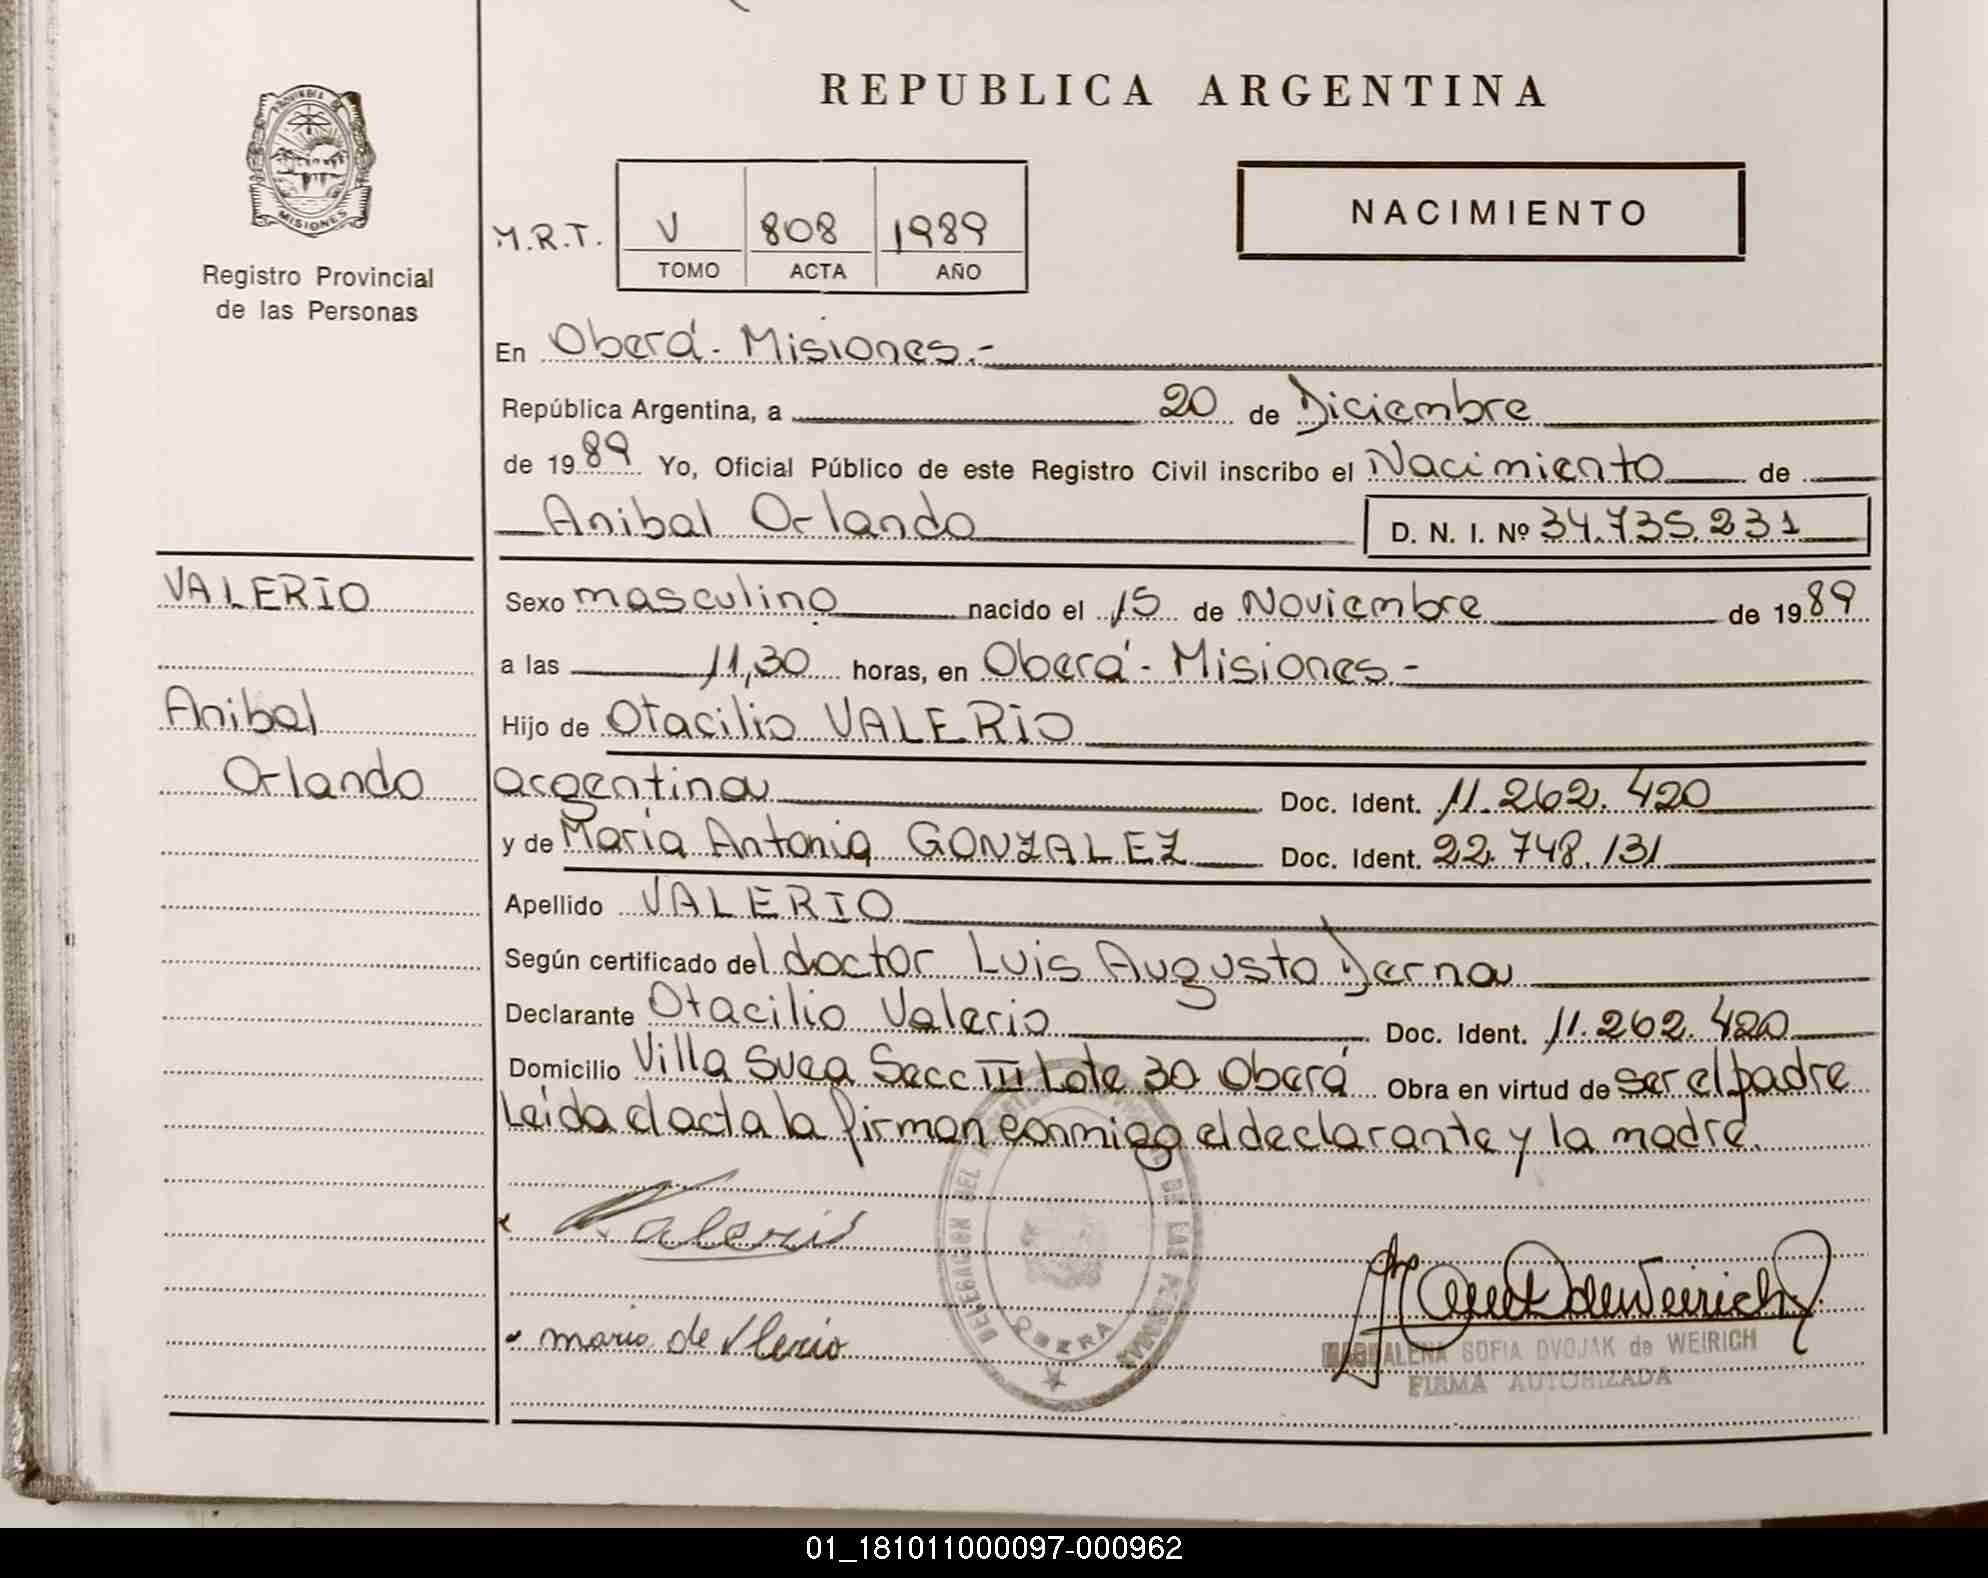 REPUBLICA ARGENTINA
PROVINCIA DE
MISIONES
Registro Provincial
de las Personas
M.R.T.
V 808 1989
TOMO ACTA AÑO
NACIMIENTO
En Oberá - Misiones.-
República Argentina, a 20 de Diciembre
de 1989 Yo, Oficial Público de este Registro Civil inscribo el Nacimiento de
Anibal Orlando D. N. I. Nº 34.735.231
VALERIO
Anibal
Orlando
Sexo masculino nacido el 15 de Noviembre de 1989
a las 11,30 horas, en Oberá - Misiones -
Hijo de Otacilio VALERIO
argentina Doc. Ident. 11.262.420
y de María Antonia GONZALEZ Doc. Ident. 22.748.131
Apellido VALERIO
Según certificado del doctor Luis Augusto Derna
Declarante Otacilio Valerio Doc. Ident. 11.262.420
Domicilio Villa Svea Secc III Lote 30 Oberá Obra en virtud de ser el padre
Leída el acta la firman conmigo el declarante y la madre.
Valerio
maria de Vlerio
DELEGACION DEL REGISTRO PROVINCIAL DE LAS PERSONAS
OBERA
MAGDALENA SOFIA DVOJAK de WEIRICH
FIRMA AUTORIZADA
01_181011000097-000962